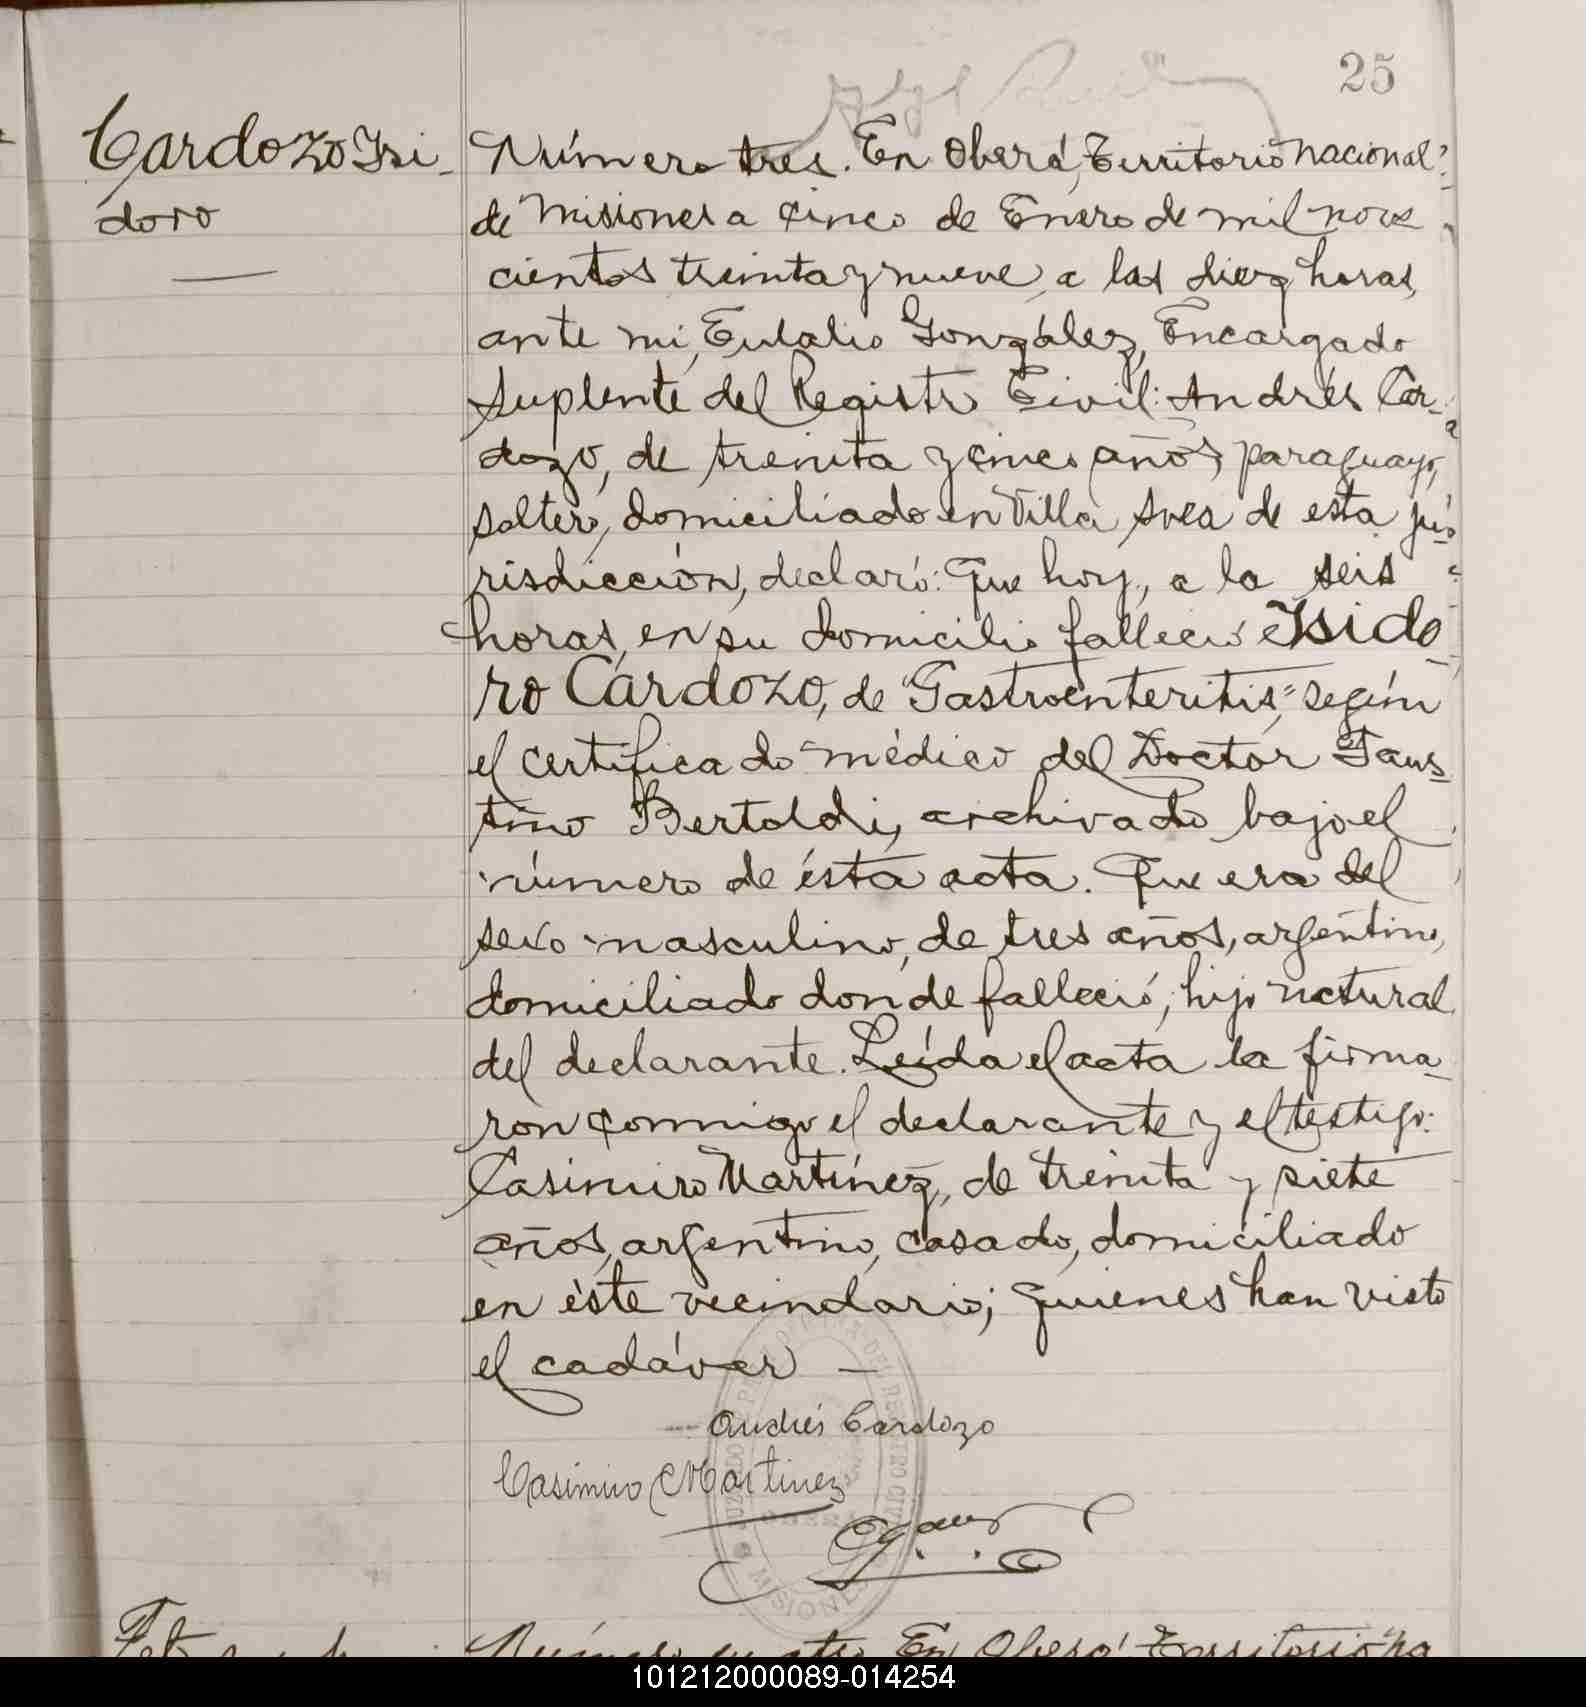 25
Cardozo Isi-
doro
Número tres. En Oberá, Territorio nacional
de Misiones a cinco de Enero de mil nove
cientos treinta y nueve, a las diez horas,
ante mi, Eulalio González, Encargado
Suplente del Registro Civil: Andrés Car-
dozo, de treinta y cinco años, paraguayo,
soltero, domiciliado en Villa Svea de esta ju-
risdicción, declaró: Que hoy, a la seis
horas, en su domicilio falleció Isido
ro Cardozo, de "Gastroenteritis," según
el certificado médico del Doctor Faus-
tino Bertoldi, archivado bajo el
número de ésta acta. Que era del
sexo masculino, de tres años, argentino,
domiciliado donde falleció; hijo natural
del declarante. Leída el acta la firma-
ron conmigo el declarante y el testigo:
Casimiro Martínez, de treinta y siete
años, argentino, casado, domiciliado
en éste vecindario; quienes han visto
el cadáver —
Andrés Cardozo
Casimiro Martinez
MISIONES
Número cuatro. En Oberá, Territorio na
101212000089-014254